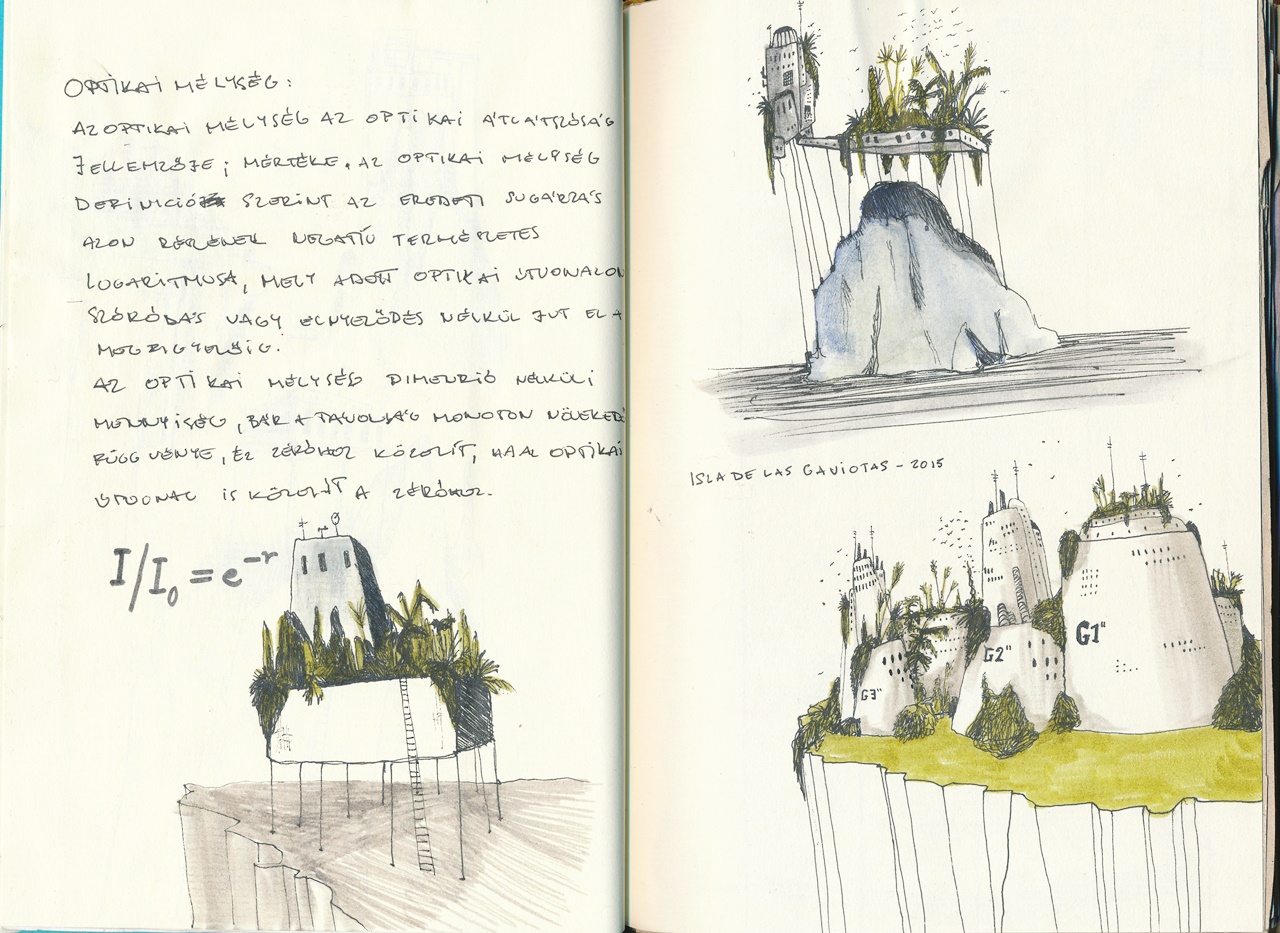 OPTIKAI MÉLYSÉG:
AZ OPTIKAI MÉLYSÉG AZ OPTIKAI ÁTLÁTSZÓSÁG
JELLEMZŐJE; MÉRTÉKE. AZ OPTIKAI MÉLYSÉG
DEFINICIÓ SZERINT AZ EREDETI SUGÁRZÁS
AZON RÉSZÉNEK NEGATÍV TERMÉSZETES
LOGARITMUSA, MELY ADOTT OPTIKAI ÚTVONALON
SZÓRÓDÁS VAGY ELNYELŐDÉS NÉLKÜL JUT EL A
MEGFIGYELŐIG.
AZ OPTIKAI MÉLYSÉG DIMENZIÓ NÉLKÜLI
MENNYISÉG, BÁR A TÁVOLSÁG MONOTON NÖVEKEDŐ
FÜGGVÉNYE, ÉS ZÉRÓHOZ KÖZELÍT, HA AZ OPTIKAI
ÚTVONAL IS KÖZELÍT A ZÉRÓHOZ.
I/I₀ = e⁻ʳ
ISLA DE LAS GAVIOTAS - 2015
G1"
G2"
G3"